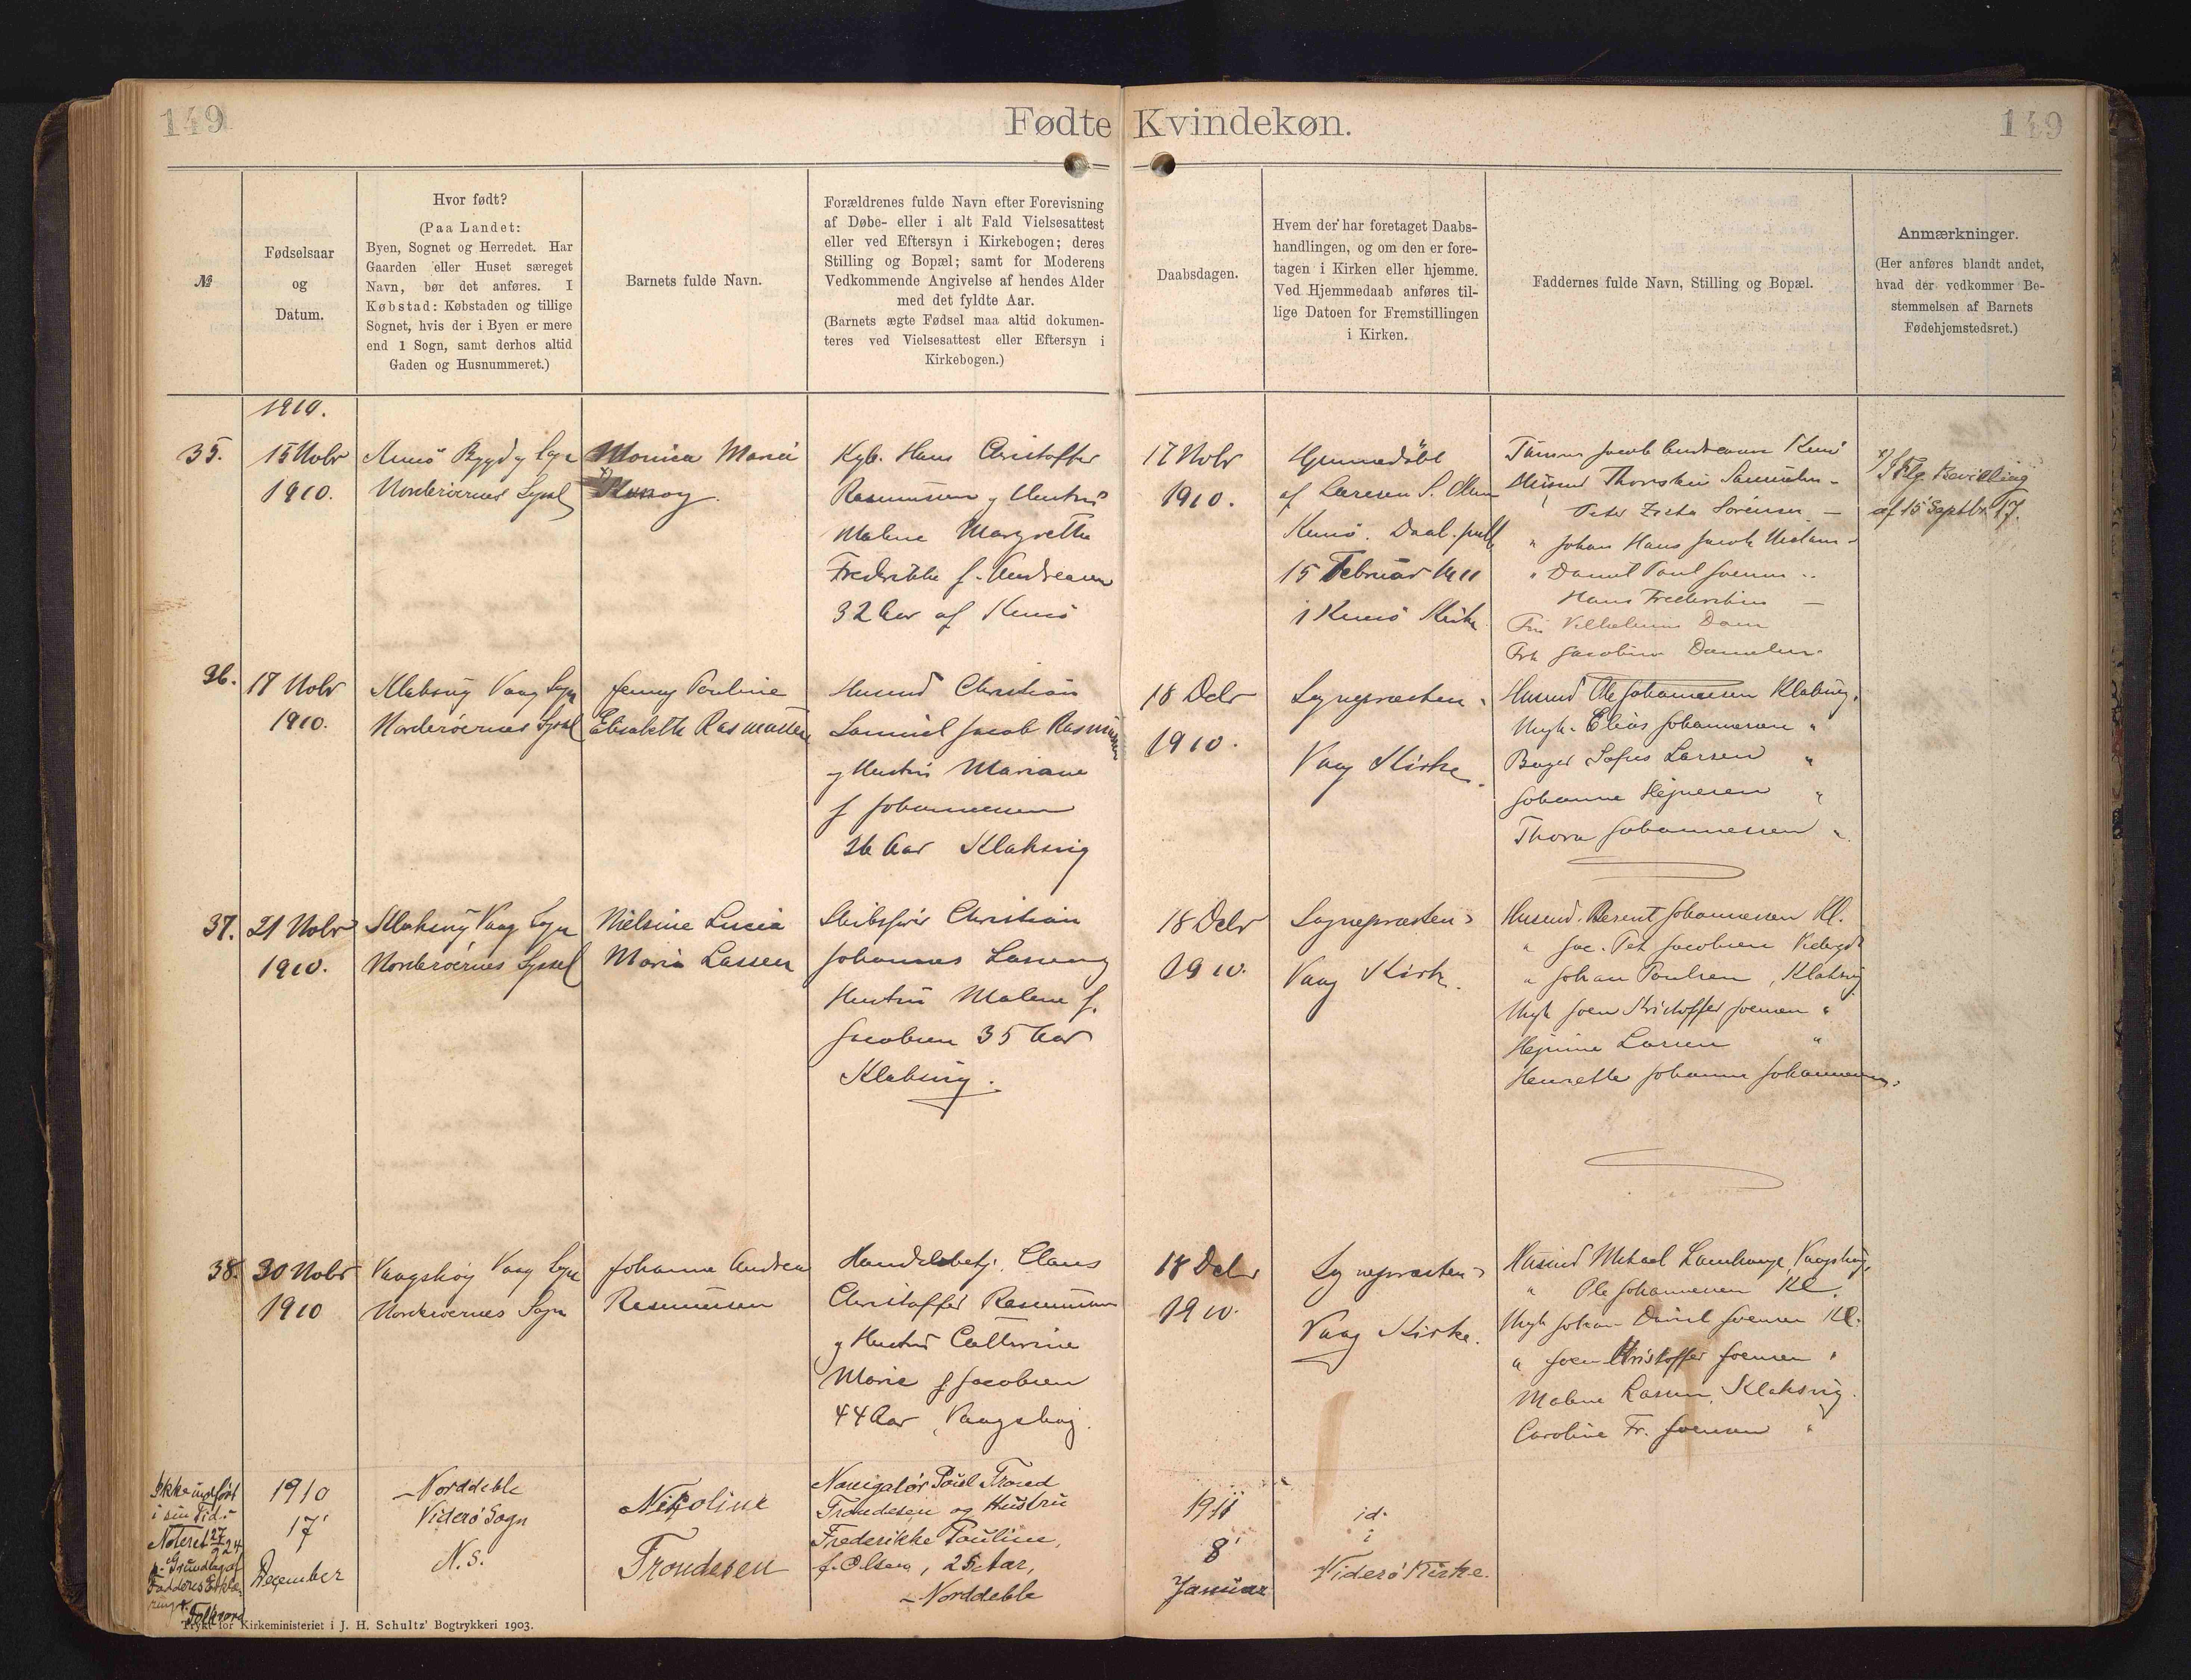 149
Fødte Kvindekøn.
149
№
Fødselsaar
og
Datum.
Hvor født?
(Paa Landet:
Byen, Sognet og Herredet. Har
Gaarden eller Huset særeget
Navn, bør det anføres. I
Købstad: Købstaden og tillige
Sognet, hvis der i Byen er mere
end 1 Sogn, samt derhos altid
Gaden og Husnummeret.)
Barnets fulde Navn.
Forældrenes fulde Navn efter Forevisning
af Døbe- eller i alt Fald Vielsesattest
eller ved Eftersyn i Kirkebogen; deres
Stilling og Bopæl; samt for Moderens
Vedkommende Angivelse af hendes Alder
med det fyldte Aar.
(Barnets ægte Fødsel maa altid dokumen-
teres ved Vielsesattest eller Eftersyn i
Kirkebogen.)
Daabsdagen.
Hvem der har foretaget Daabs-
handlingen, og om den er fore-
tagen i Kirken eller hjemme.
Ved Hjemmedaab anføres til-
lige Datoen for Fremstillingen
i Kirken.
Faddernes fulde Navn, Stilling og Bopæl.
Anmærkninger.
(Her anføres blandt andet,
hvad der vedkommer Be-
stemmelsen af Barnets
Fødehjemstedsret.)
1910.
35.
15 Nobr
1910.
Kunø Bygd og Sogn
Norderøernes Syssel
Monica Maria
x) Kunoy.
Kgb. Hans Christoffer
Rasmussen og Hustru
Malene Margrethe
Frederikke f. Andreasen
32 Aar af Kunø
17 Nobr
1910.
Hjemmedøbt
af Læreren S. Olsen
Kunø. Daab. publ.
15 Februar 1911
i Kunø Kirke
Jacob Andreasen Kunø
Husmd Thorstein Samuelsen -
Peter Sørensen -
" Johan Hans Jacob
" Daniel Paul Joensen -
Hans Frederiksen -
Fru Vilhelmine Dam
Frk Jacobine Danielsen
x) Iflg. Bevilling
af 15 Septbr. 17.
36.
17 Nobr
1910.
Klaksvig Vaag Sogn
Norderøernes Syssel
Jenny Pauline
Elisabeth Rasmussen
Husmd Christian
Samuel Jacob Rasmussen
og Hustru Mariane
f Johannessen
26 Aar Klaksvig
18 Debr
1910.
Sognepræsten i
Vaag Kirke.
Husmd Ole Johannesen Klaksvig.
Ungk. Elias Johannesen "
Bager Sofus Larsen "
Johanne Hejnesen "
Thora Johannessen "
37.
21 Nobr
1910.
Klaksvig Vaag Sogn
Norderøernes Syssel
Nielsine Lucia
Maria Lassen
Skibsfører Christian
Johannes Lassen og
Hustru Malene f.
Jacobsen 35 Aar
Klaksvig.
18 Debr
1910.
Sognepræsten i
Vaag Kirke.
Husmd. Berent Johannesen Kl.
" Jac. Pet Jacobsen
" Johan Poulsen, Klaksvig
Ungk Joen Kristoffer Joensen "
Hejnine Lassen "
Henrette Johanne Johannesen.
38.
30 Nobr
1910
Vaagshøj Vaag Sogn
Norderøernes Sogn
Johanne Andrea
Rasmussen
Handelsbetj. Claus
Christoffer Rasmussen
og Hustru Cathrine
Marie f Jacobsen
44 Aar, Vaagshøj.
18 Debr
1910.
Sognepræsten i
Vaag Kirke.
Husmd Mikael Lamhauge, Vaagshøj,
" Ole Johannesen Kl.
Ungk Johan Daniel Joensen Kl.
" Joen Kristoffer Joensen "
Malene Lassen, Klaksvig.
Caroline Fr. Joensen "
Ikke indført
i sin Tid.
Noteret 27/9 24
p. Grundlag af
Fadderes Erklæ
ringer.
1910
17'
December
Norddeble
Viderø Sogn
N.S.
Nikoline
Trondesen
Navigatør Poul Trond
Trondesen og Hustru
Frederikke Pauline,
f. Olsen, 25 Aar,
Norddeble
1911
8'
Januar
id.
i
Viderø Kirke.
Trykt for Kirkeministeriet i J. H. Schultz' Bogtrykkeri 1903.